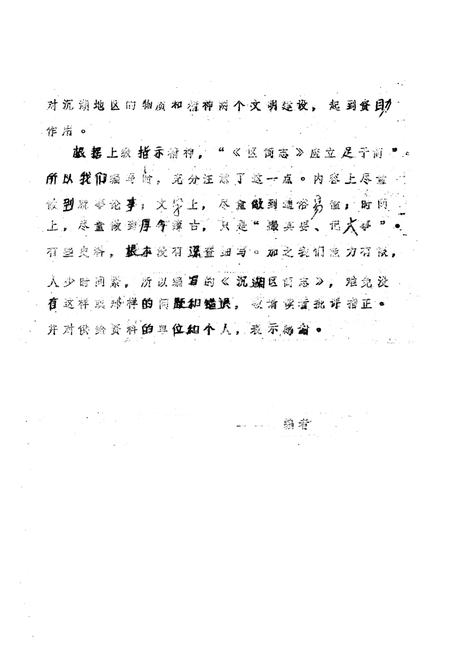 对沉湖地区的物质和精神两个文明建设，起到资助
作用。
根据上级指示精神，“《区简志》应立足于简”。
所以我们编写时，充分注意了这一点。内容上尽量
做到就事论事；文字上，尽量做到通俗易懂；时间
上，尽量做到厚今薄古，只是“撮其要、记大事”。
有些史料，根本没有深查细写。加之我们能力有限，
人少时间紧，所以编写的《沉湖区简志》，难免没
有这样或那样的问题和错误，敬请读者批评指正。
并对供给资料的单位和个人，表示感谢。
——编者